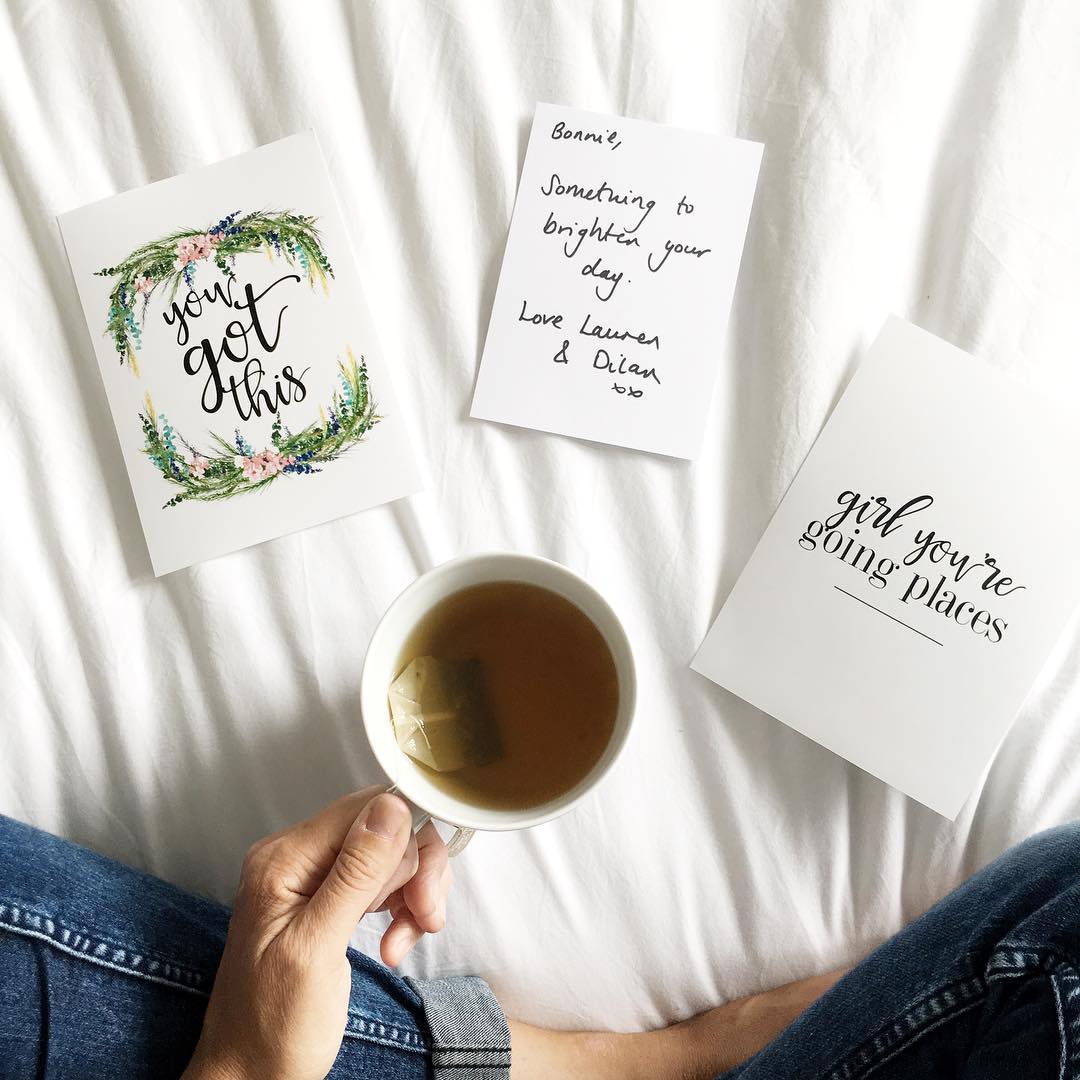 you
got
this
Bonnie,
Something to
brighten your
day.
Love Lauren
& Dilan
xx
girl you're
going places